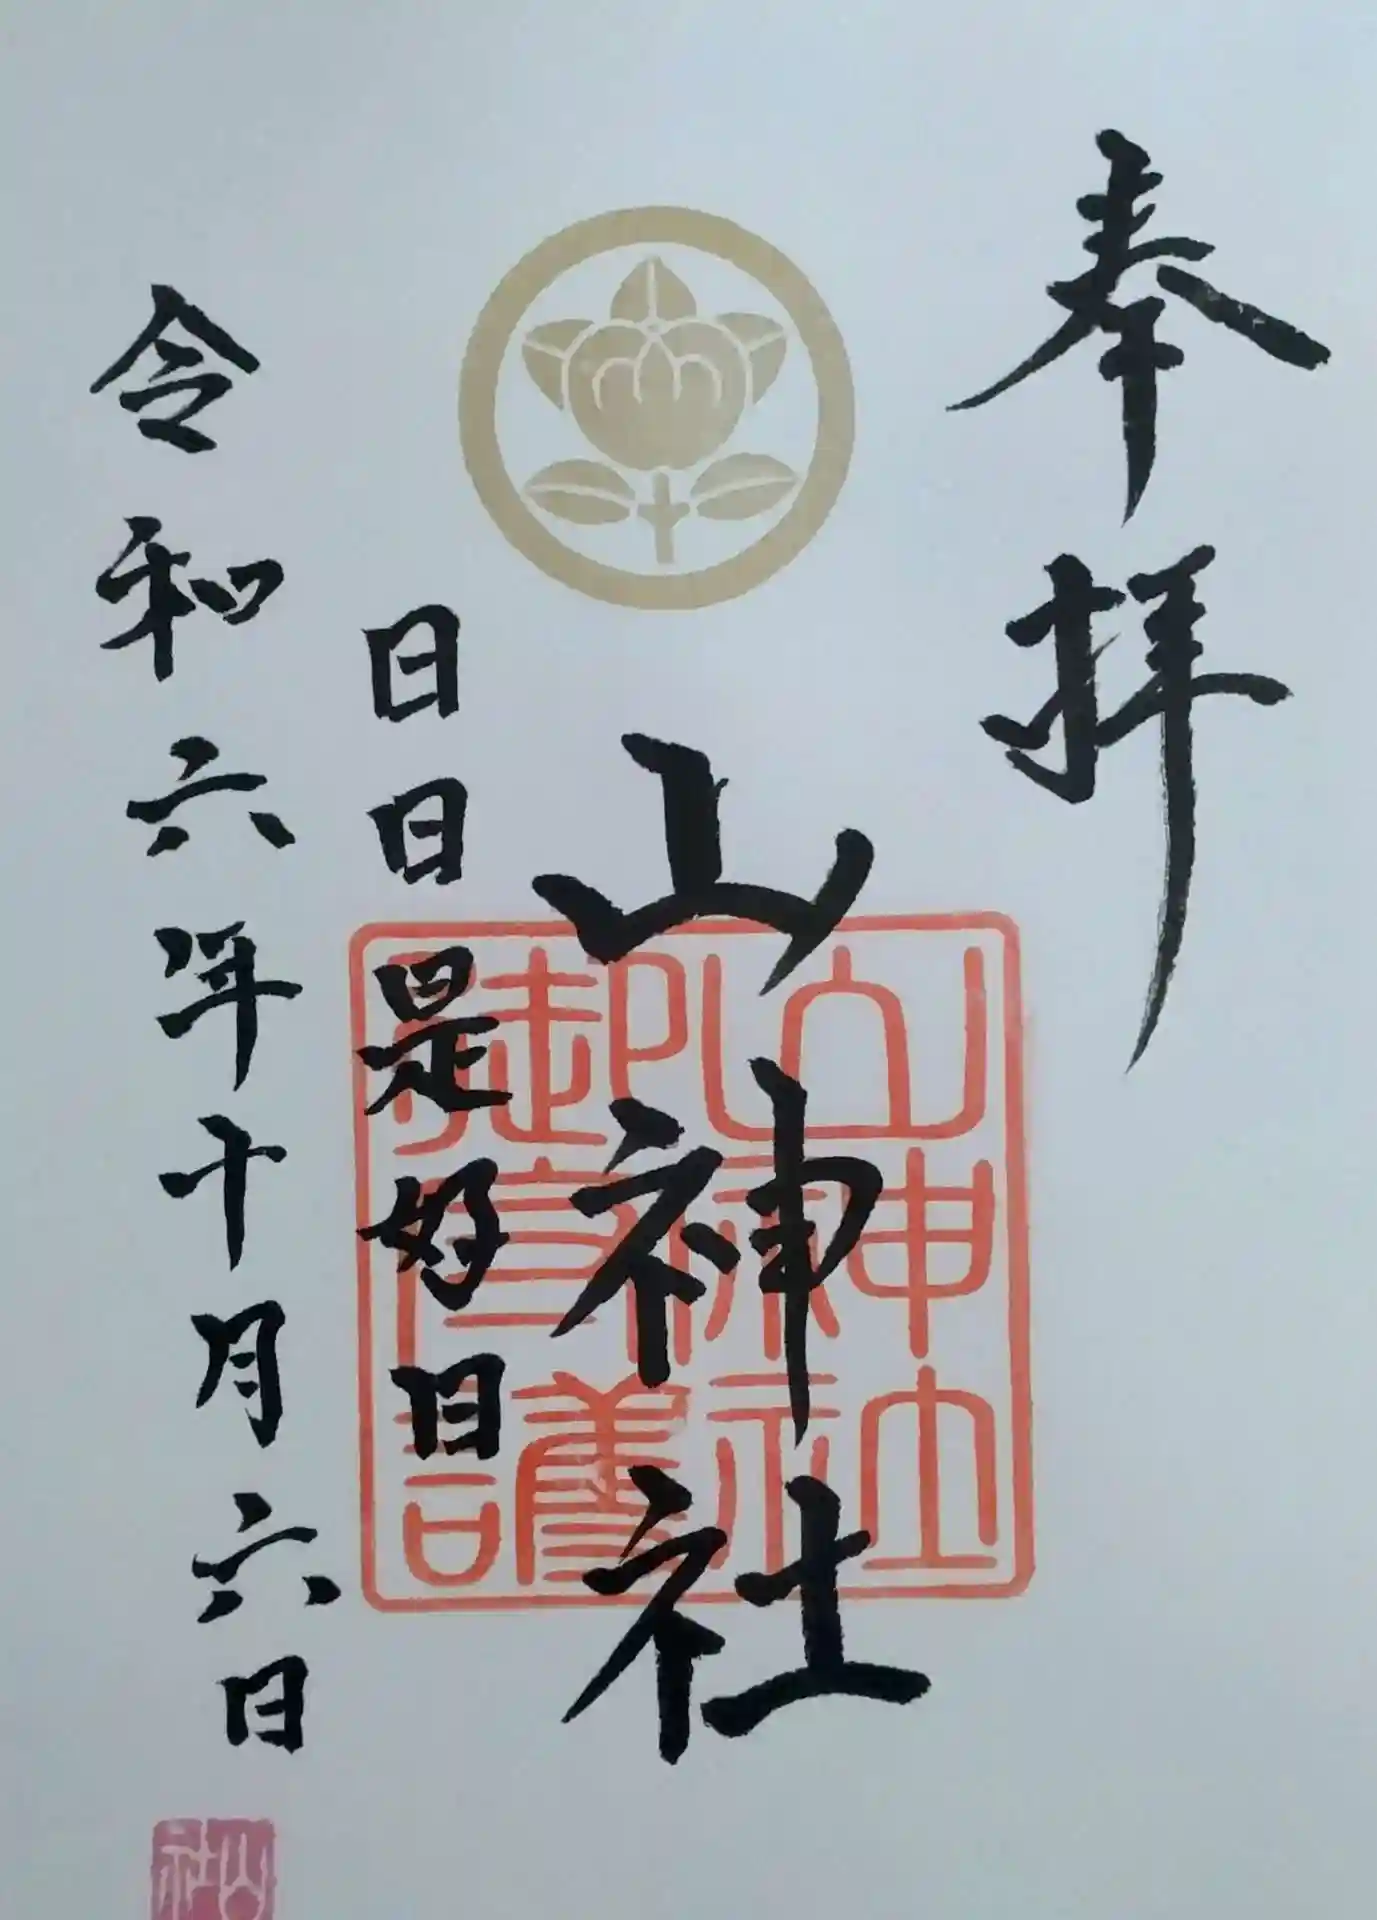 奉拝
山神社
山神社御守護
日日是好日
令和六年十月六日